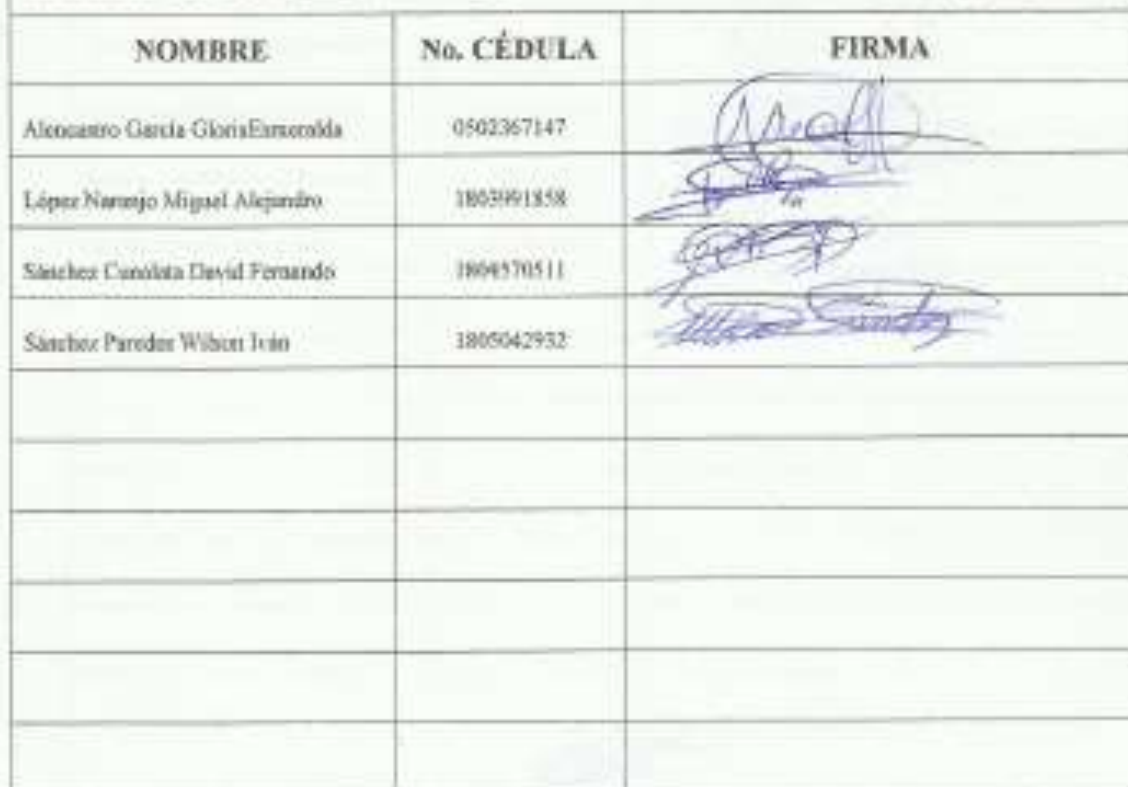 NOMBRE No. CÉDULA FIRMA
Alencastro García GloriaEsmeralda 0502367147
López Naranjo Miguel Alejandro 1803991858
Sánchez Cunalata David Fernando 1804570511
Sánchez Paredes Wilson Iván 1805042932